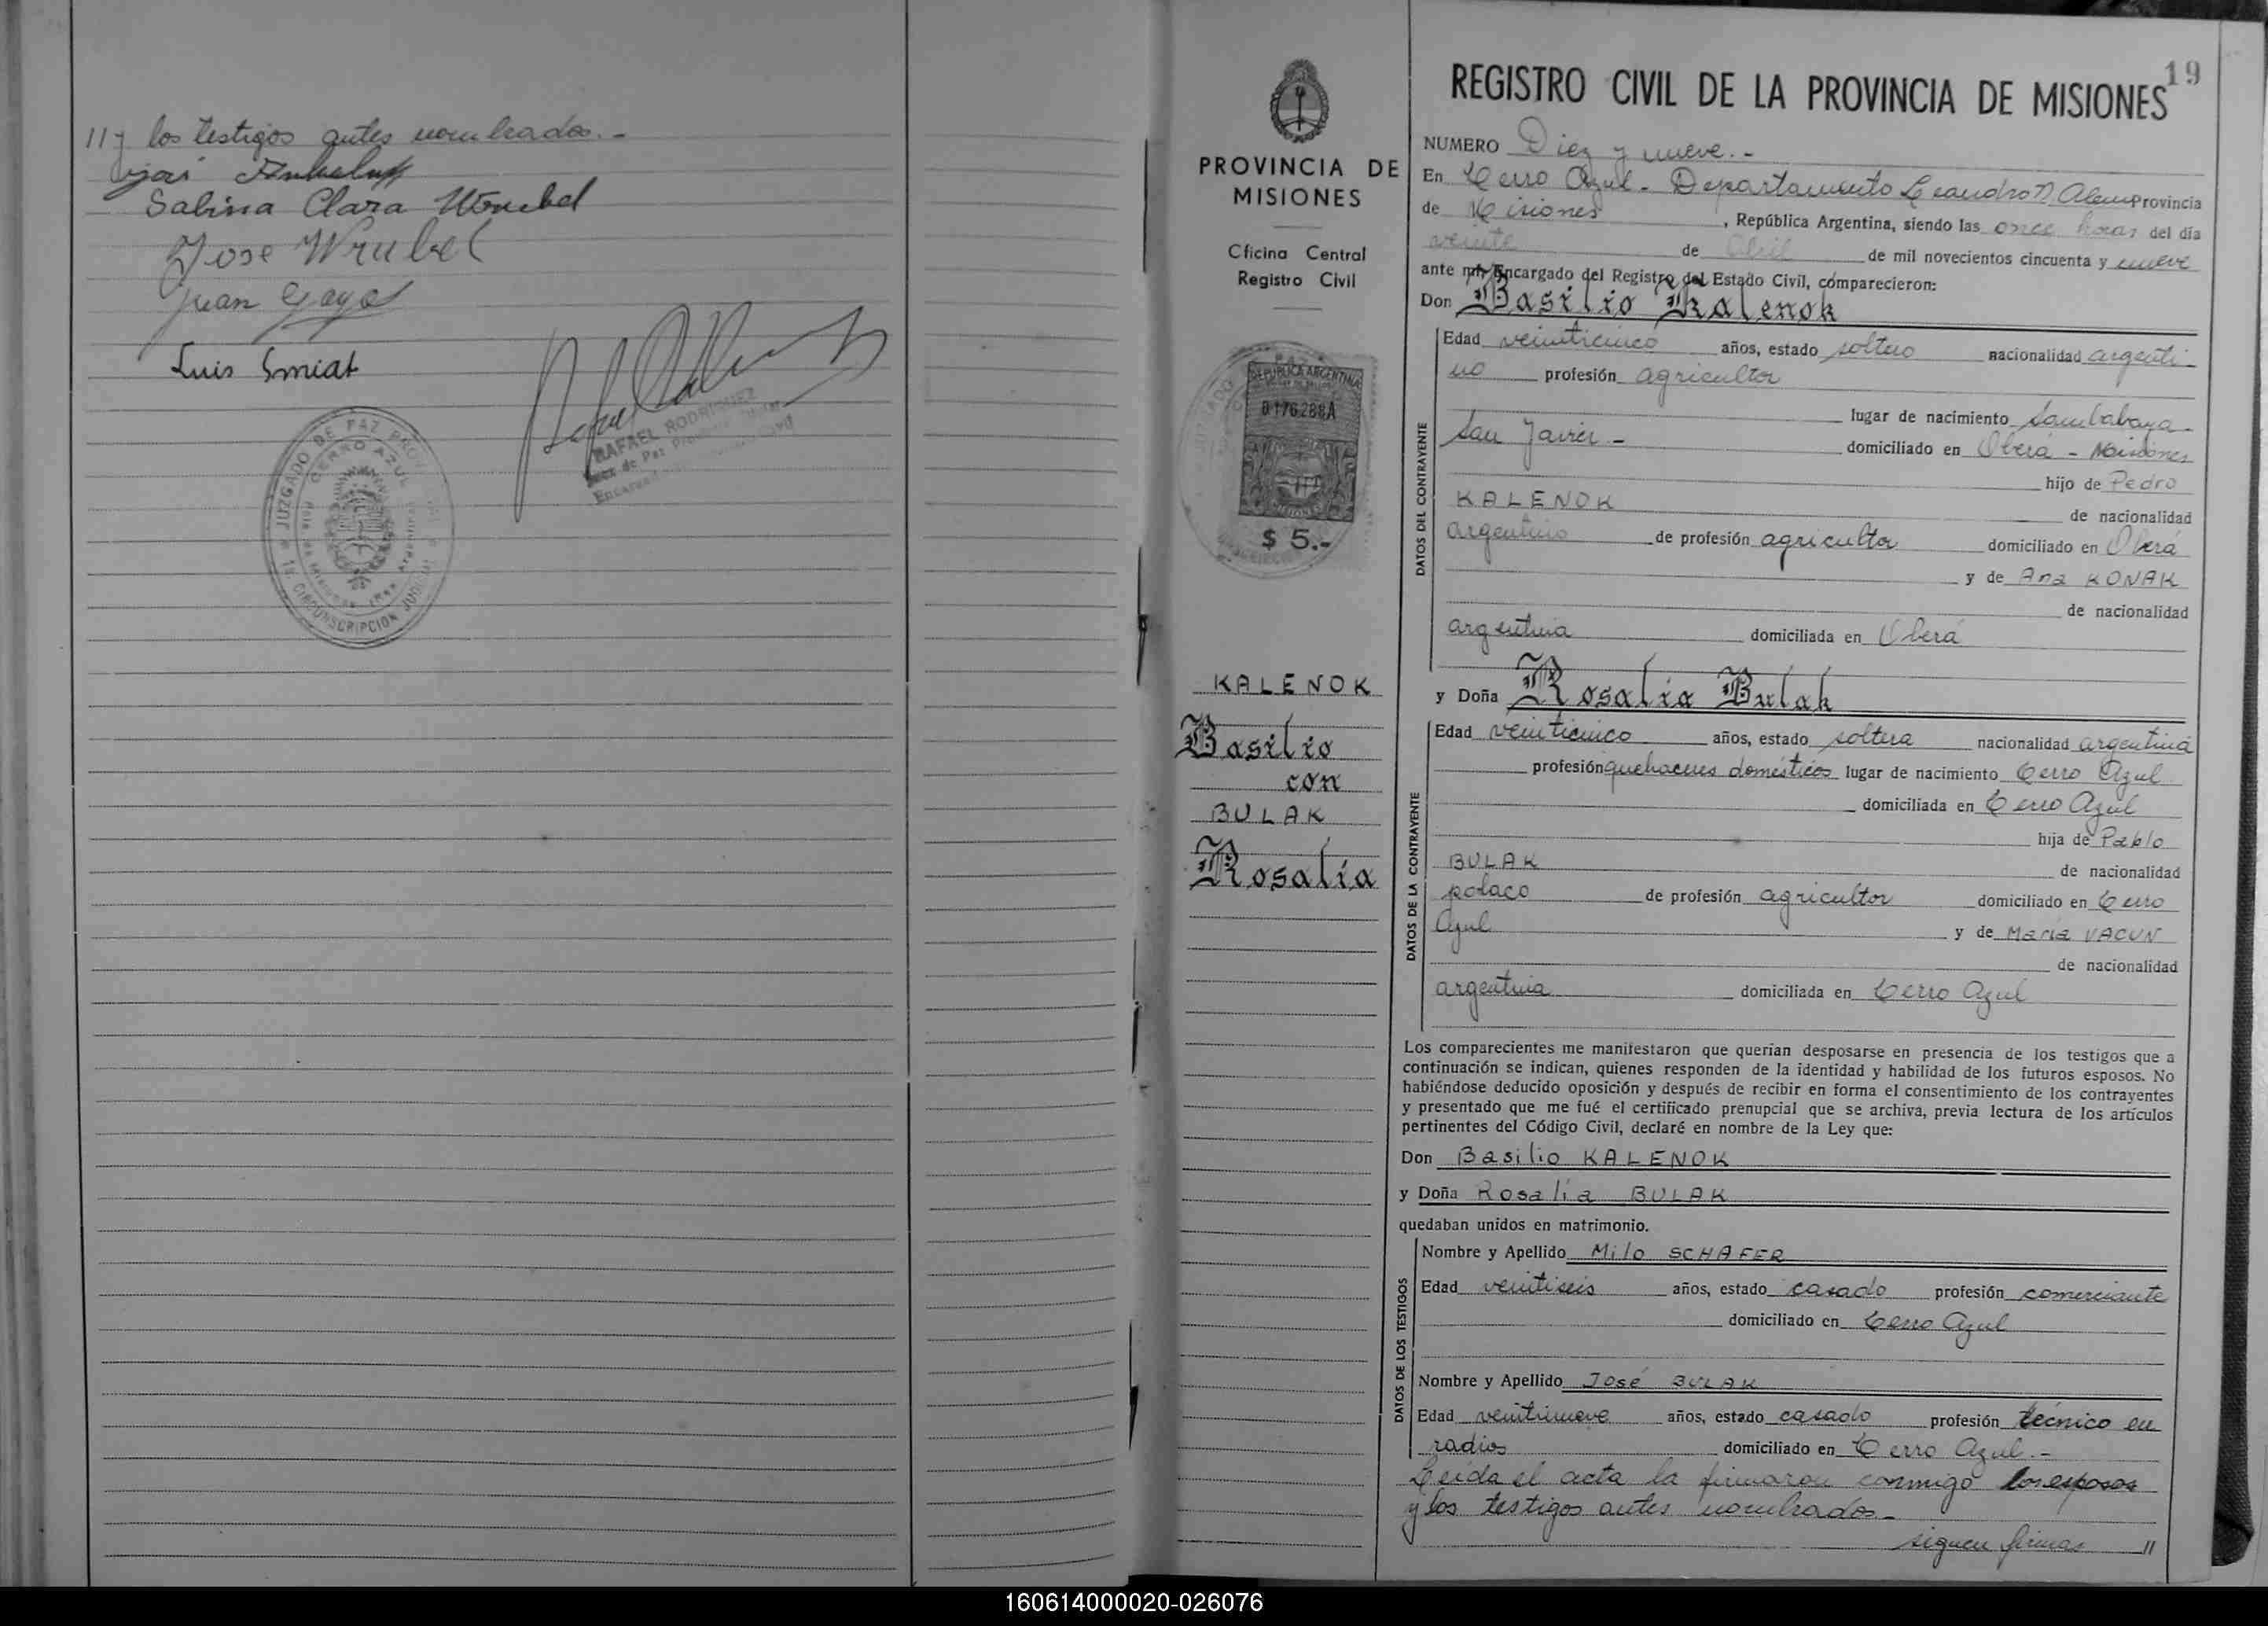 // y los testigos antes nombrados.-
Sabina Clara Wrubel
Jose Wrubel
Juan Gaya
Luis Smiat
RAFAEL RODRIGUEZ
Juez de Paz
JUZGADO DE PAZ
CERRO AZUL
1a. CIRCUNSCRIPCION JUDICIAL
PROVINCIA DE
MISIONES
Oficina Central
Registro Civil
REPUBLICA ARGENTINA
0176288A
MISIONES
$ 5.-
KALENOK
Basilio
con
BULAK
Rosalía
19
REGISTRO CIVIL DE LA PROVINCIA DE MISIONES
NUMERO Diez y nueve.-
En Cerro Azul - Departamento Leandro N. Alem Provincia
de Misiones, República Argentina, siendo las once horas del día
veinte de Abril de mil novecientos cincuenta y nueve
ante mí, Encargado del Registro del Estado Civil, comparecieron:
Don Basilio Kalenok
DATOS DEL CONTRAYENTE
Edad veinticinco años, estado soltero nacionalidad argenti-
no profesión agricultor
lugar de nacimiento Sambabaya-
San Javier - domiciliado en Oberá - Misiones
hijo de Pedro
KALENOK de nacionalidad
argentino de profesión agricultor domiciliado en Oberá
y de Ana KONAK
de nacionalidad
argentina domiciliada en Oberá
y Doña Rosalía Bulak
DATOS DE LA CONTRAYENTE
Edad veinticinco años, estado soltera nacionalidad argentina
profesión quehaceres domésticos lugar de nacimiento Cerro Azul
domiciliada en Cerro Azul
hija de Pablo
BULAK de nacionalidad
polaco de profesión agricultor domiciliado en Cerro
Azul y de María VACUN
de nacionalidad
argentina domiciliada en Cerro Azul
Los comparecientes me manifestaron que querían desposarse en presencia de los testigos que a
continuación se indican, quienes responden de la identidad y habilidad de los futuros esposos. No
habiéndose deducido oposición y después de recibir en forma el consentimiento de los contrayentes
y presentado que me fué el certificado prenupcial que se archiva, previa lectura de los artículos
pertinentes del Código Civil, declaré en nombre de la Ley que:
Don Basilio KALENOK
y Doña Rosalía BULAK
quedaban unidos en matrimonio.
DATOS DE LOS TESTIGOS
Nombre y Apellido Milo SCHAFER
Edad veintiseis años, estado casado profesión comerciante
domiciliado en Cerro Azul
Nombre y Apellido José BULAK
Edad veintinueve años, estado casado profesión técnico en
radios domiciliado en Cerro Azul.-
Leída el acta la firmaron conmigo los esposos
y los testigos antes nombrados.-
siguen firmas //
160614000020-026076